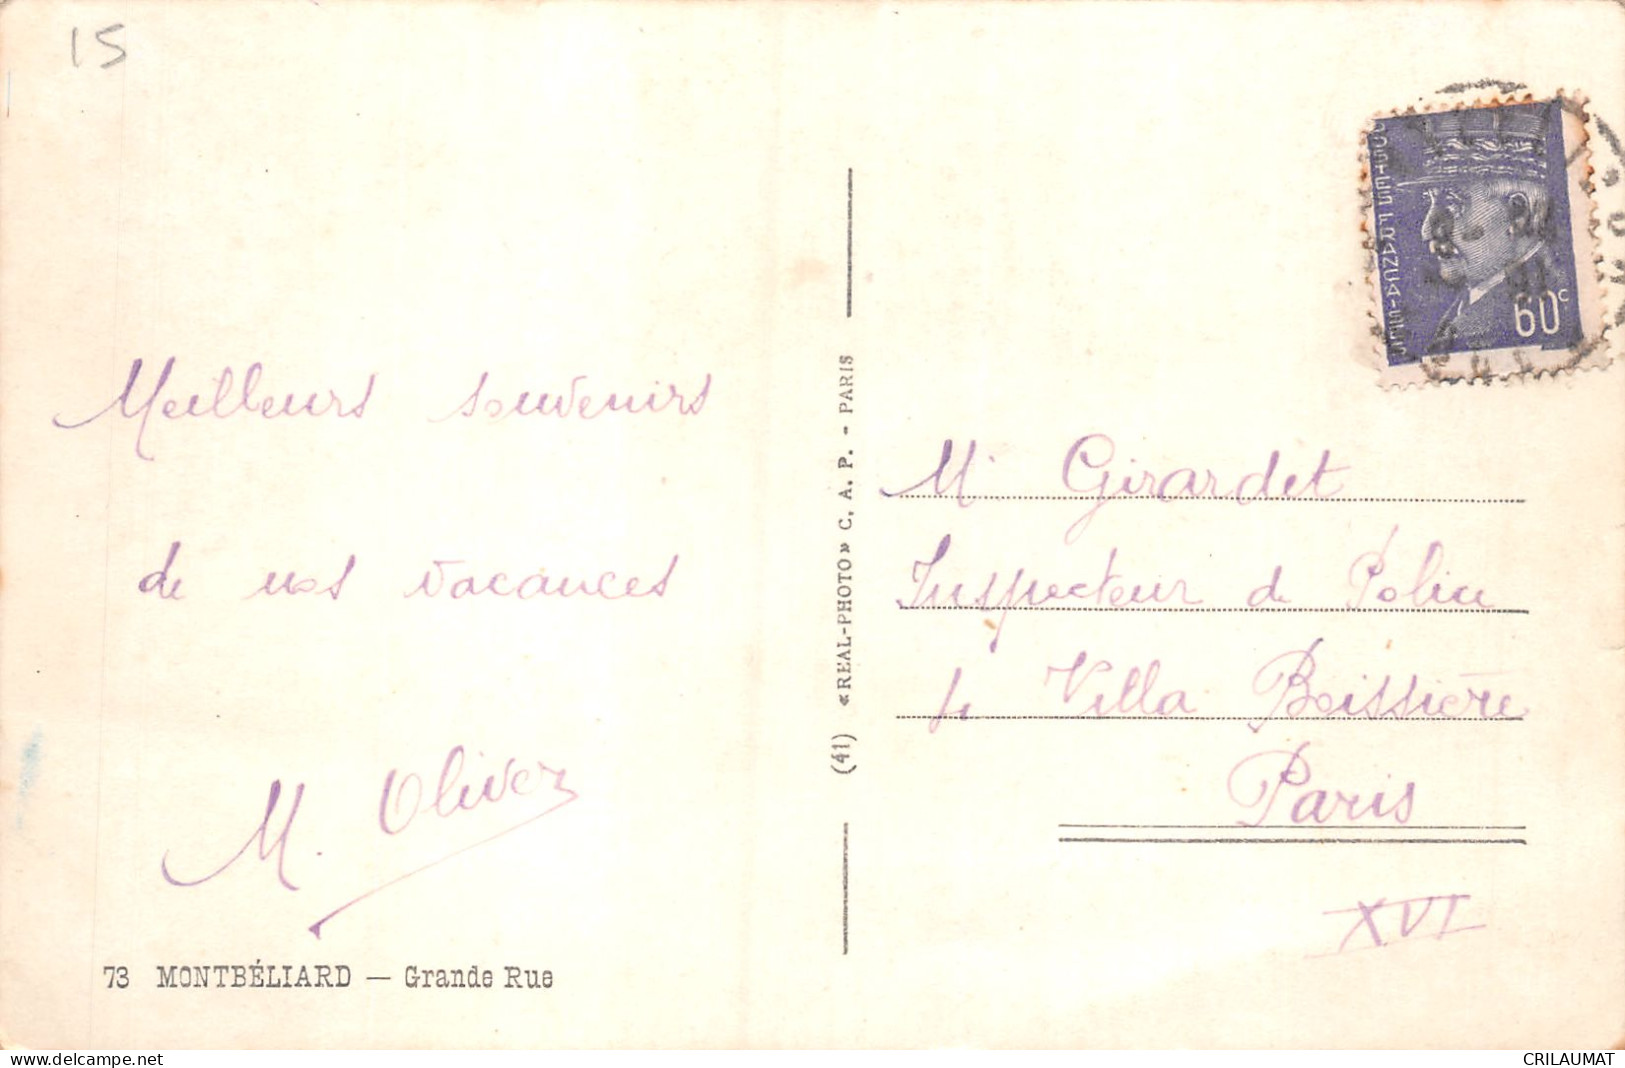 15
POSTES FRANÇAISES
60c
Meilleurs souvenirs
de nos vacances
M. Olivez
73 MONTBÉLIARD — Grande Rue
(41) «REAL-PHOTO» C. A. P. - PARIS
Mr Girardet
Inspecteur de Police
Villa Boissière
Paris
XVI
CRILAUMAT